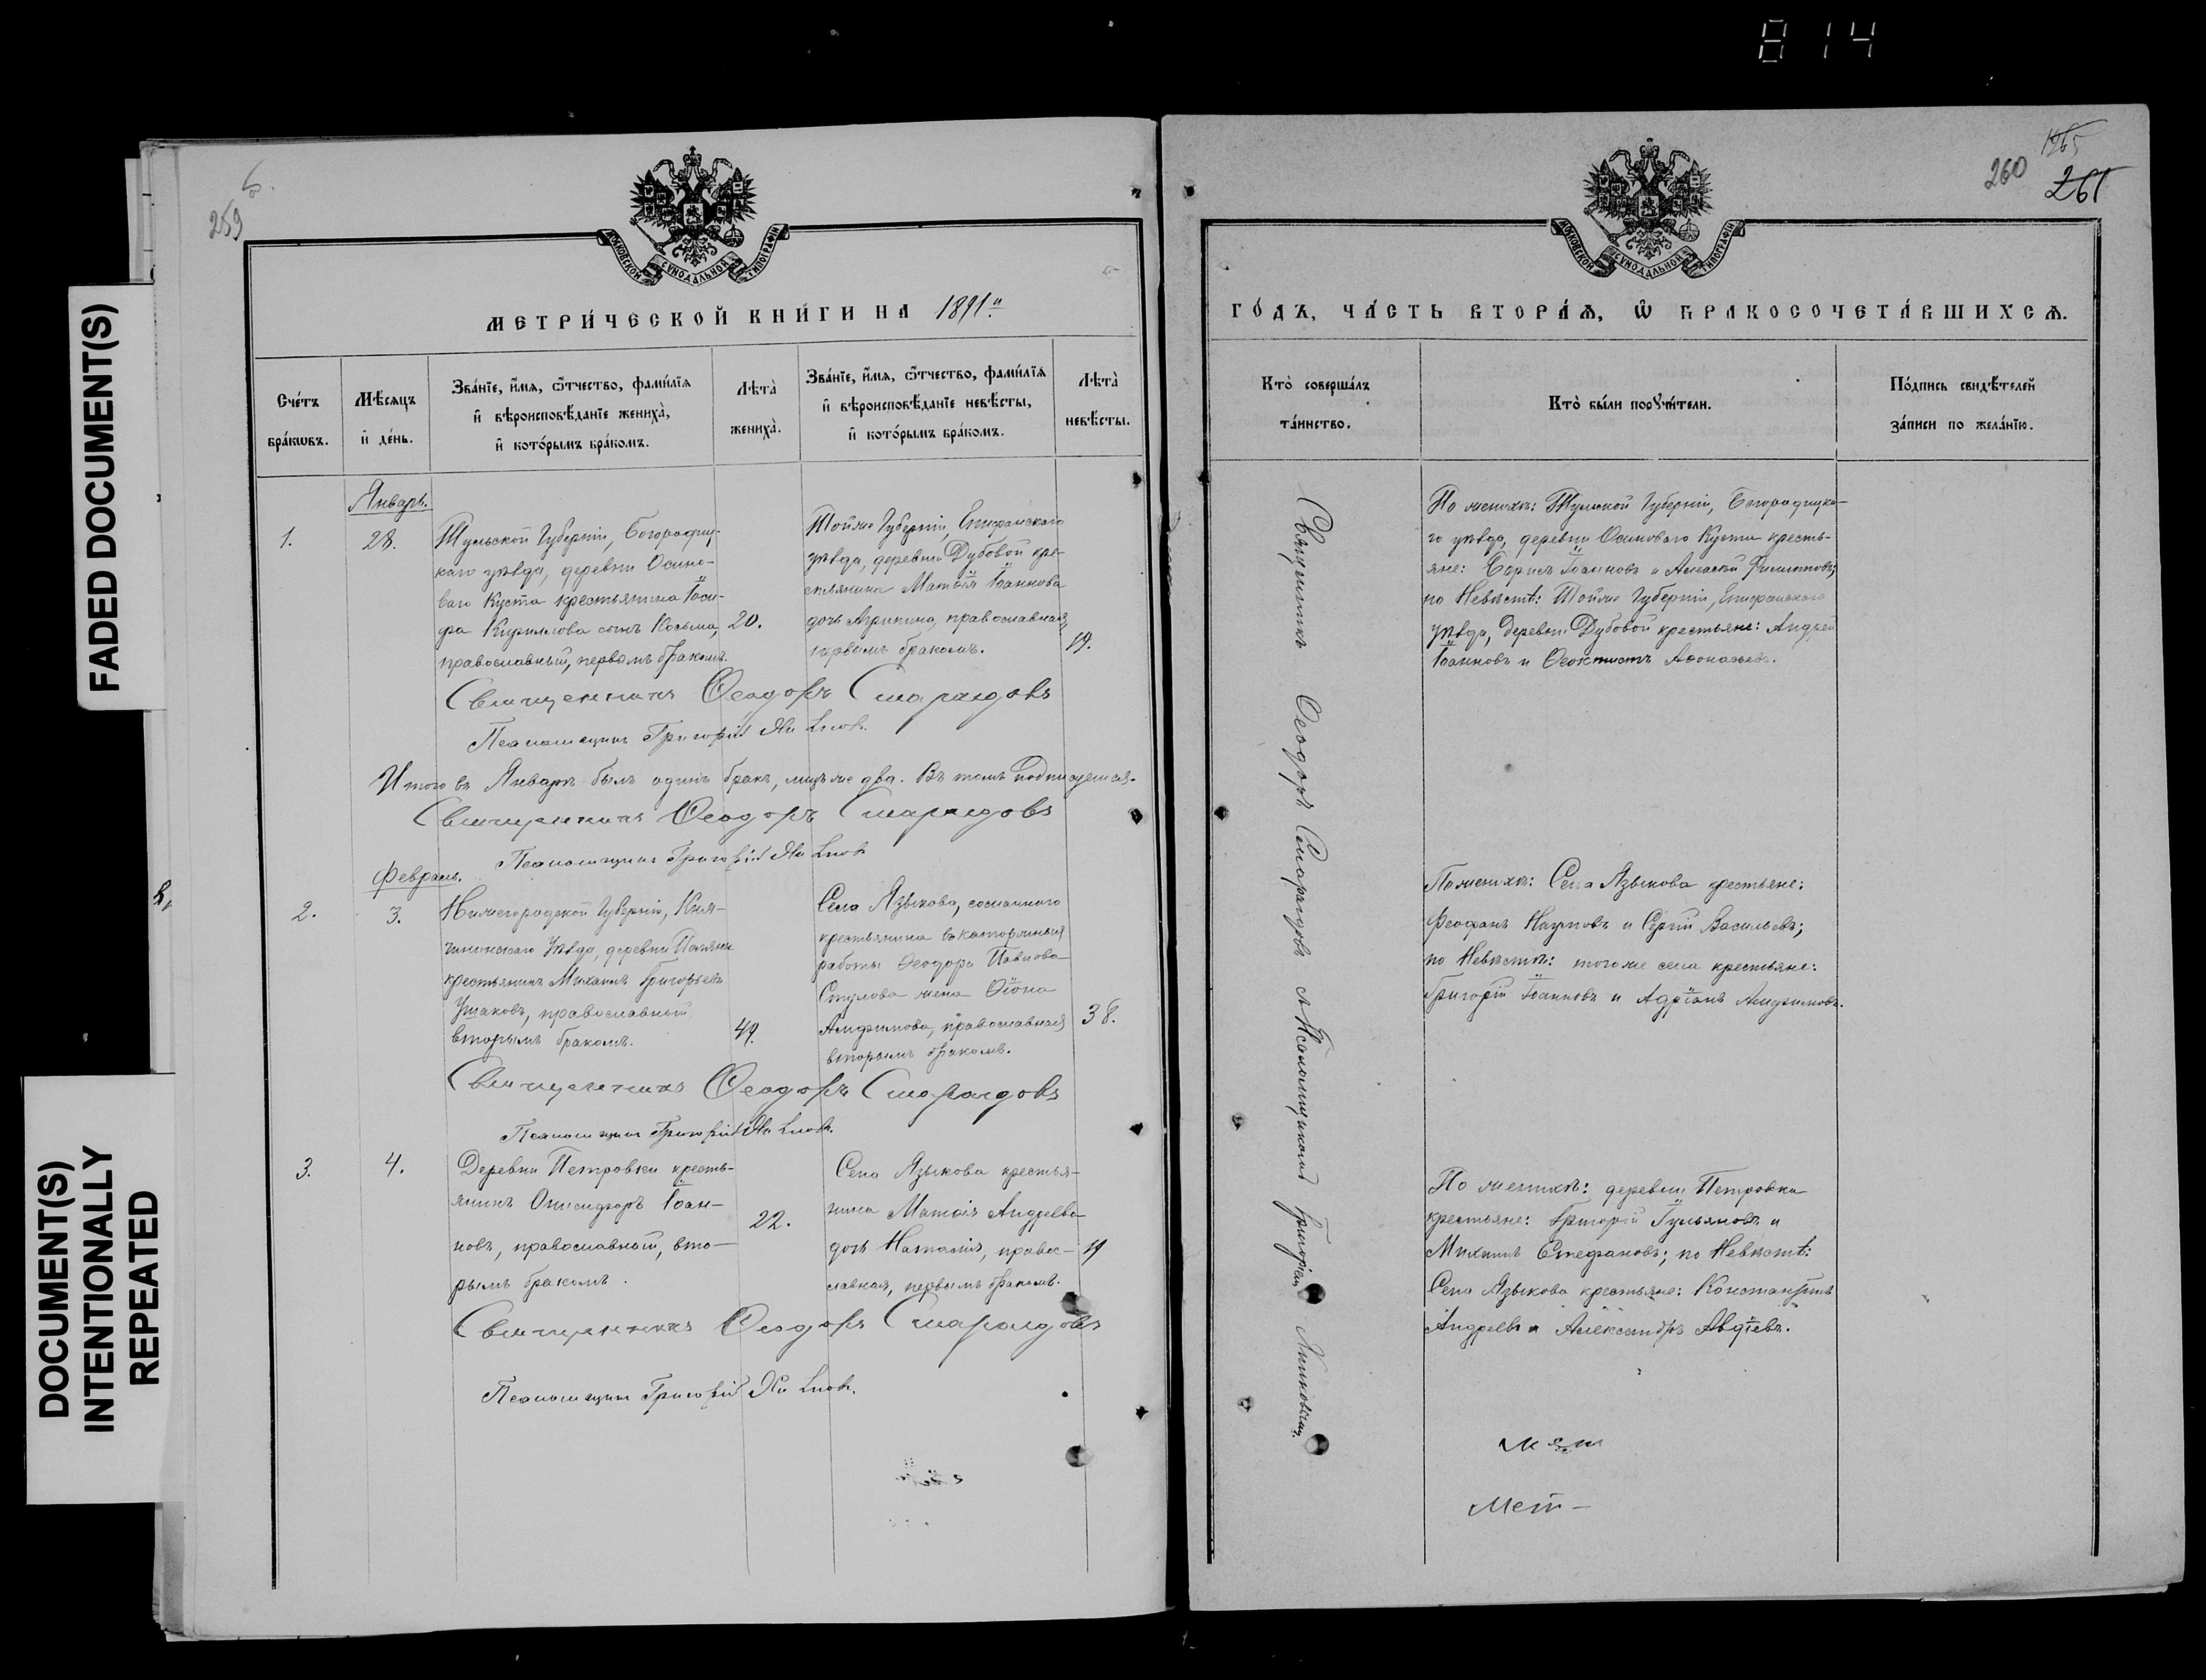 814
FADED DOCUMENT(S)
DOCUMENT(S)
INTENTIONALLY
REPEATED
259
МОСКОВСКОЙ СѴНОДАЛЬНОЙ ТИПОГРАФІИ
МЕТРИ́ЧЕСКОЙ КНИ́ГИ НА 1891й
Сче́тъ бра́кѡвъ.
Мѣ́сяцъ и҆ де́нь.
Зва́нїе, и҆́мѧ, ѻ҆́тчество, фами́лїѧ
и҆ вѣроисповѣ́данїе жениха̀,
и҆ кото́рымъ бра́комъ.
Лѣта̀ жениха̀.
Зва́нїе, и҆́мѧ, ѻ҆́тчество, фами́лїѧ
и҆ вѣроисповѣ́данїе невѣ́сты,
и҆ кото́рымъ бра́комъ.
Лѣта̀ невѣ́сты.
Январь.
1.
28.
Тульской Губерніи, Богородиц-
каго уѣзда, деревни Осино-
ваго Куста крестьянина Іоси-
фа Кириллова сынъ Косьма,
православный, первымъ бракомъ.
20.
Тойже Губерніи, Епифанскаго
уѣзда, деревни Дубовой кре-
стьянина Матѳія Іоаннова
дочь Агрипина, православная,
первымъ бракомъ.
19.
Священникъ Ѳеодоръ Смарагдовъ
Псаломщикъ Григорій
Итого въ Январѣ былъ одинъ бракъ, лицъ же два. Въ томъ подписуемся.
Священникъ Ѳеодоръ Смарагдовъ
Псаломщикъ Григорій
Февраль.
2.
3.
Нижегородской Губерніи, Княг-
ининскаго Уѣзда, деревни
крестьянинъ Михаилъ Григорьевъ
Ушаковъ, православный
вторымъ бракомъ.
49.
Села Языкова, сосланнаго
крестьянина въ каторжныя
работы Ѳеодора Павлова
жена
Анфимова, православная
вторымъ бракомъ.
38.
Священникъ Ѳеодоръ Смарагдовъ
Псаломщикъ Григорій
3.
4.
Деревни Петровки кресть-
янинъ Онисифоръ Іоан-
новъ, православный, вто-
рымъ бракомъ.
22.
Села Языкова крестья-
нина Матѳія Андреева
дочь Наталія, правос-
лавная, первымъ бракомъ.
19
Священникъ Ѳеодоръ Смарагдовъ
Псаломщикъ Григорій
260
1265
261
МОСКОВСКОЙ СѴНОДАЛЬНОЙ ТИПОГРАФІИ
ГО́ДЪ, ЧА́СТЬ ВТОРА́Ѧ, Ѡ҆ БРАКОСОЧЕТА́ВШИХСѦ.
Кто̀ соверша́лъ
та́инство.
Кто̀ бы́ли порꙋчи́тели.
По́дпись свидѣ́телей
за́писи по жела́нїю.
Священникъ Ѳеодоръ Смарагдовъ съ Псаломщикомъ Григоріемъ
По женихѣ: Тульской Губерніи, Богородицка-
го уѣзда, деревни Осиноваго Куста кресть-
яне: Борисъ Іоанновъ и Алексѣй Филипповъ;
по Невѣстѣ: Тойже Губерніи, Епифанскаго
уѣзда, деревни Дубовой крестьяне: Андрей
Іоанновъ и Ѳеоктистъ Аѳонасьевъ.
По женихѣ: Села Языкова крестьяне:
Феофанъ Наумовъ и Сергій Васильевъ;
по Невѣстѣ: тогоже села крестьяне:
Григорій Іоанновъ и Адріанъ Анфимовъ.
По женихѣ: деревни Петровки
крестьяне: Григорій Гульяновъ и
Михаилъ Стефановъ; по Невѣстѣ:
Села Языкова крестьяне: Константинъ
Андреевъ и Александръ Авдіевъ.